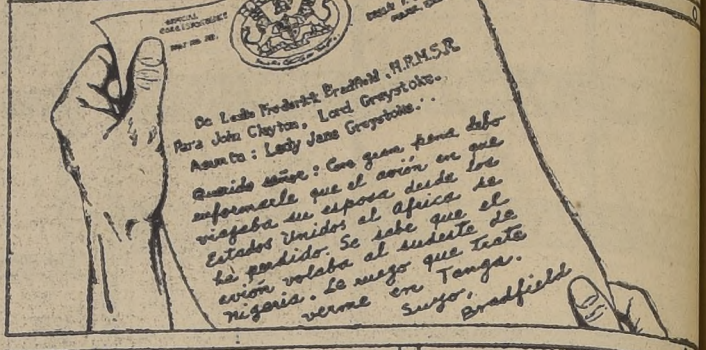 De Leslie Frederick Bradfield, H.R.M.S.R.
Para John Clayton, Lord Greystoke.
Asunto: Lady Jane Greystoke.
Querido señor: Con gran pena debo
informarle que el avión en que
viajaba su esposa desde los
Estados Unidos al Africa se
ha perdido. Se sabe que el
avión volaba al sudeste de
Nigeria. Le ruego que trate
verme en Tanga.
Suyo,
Bradfield